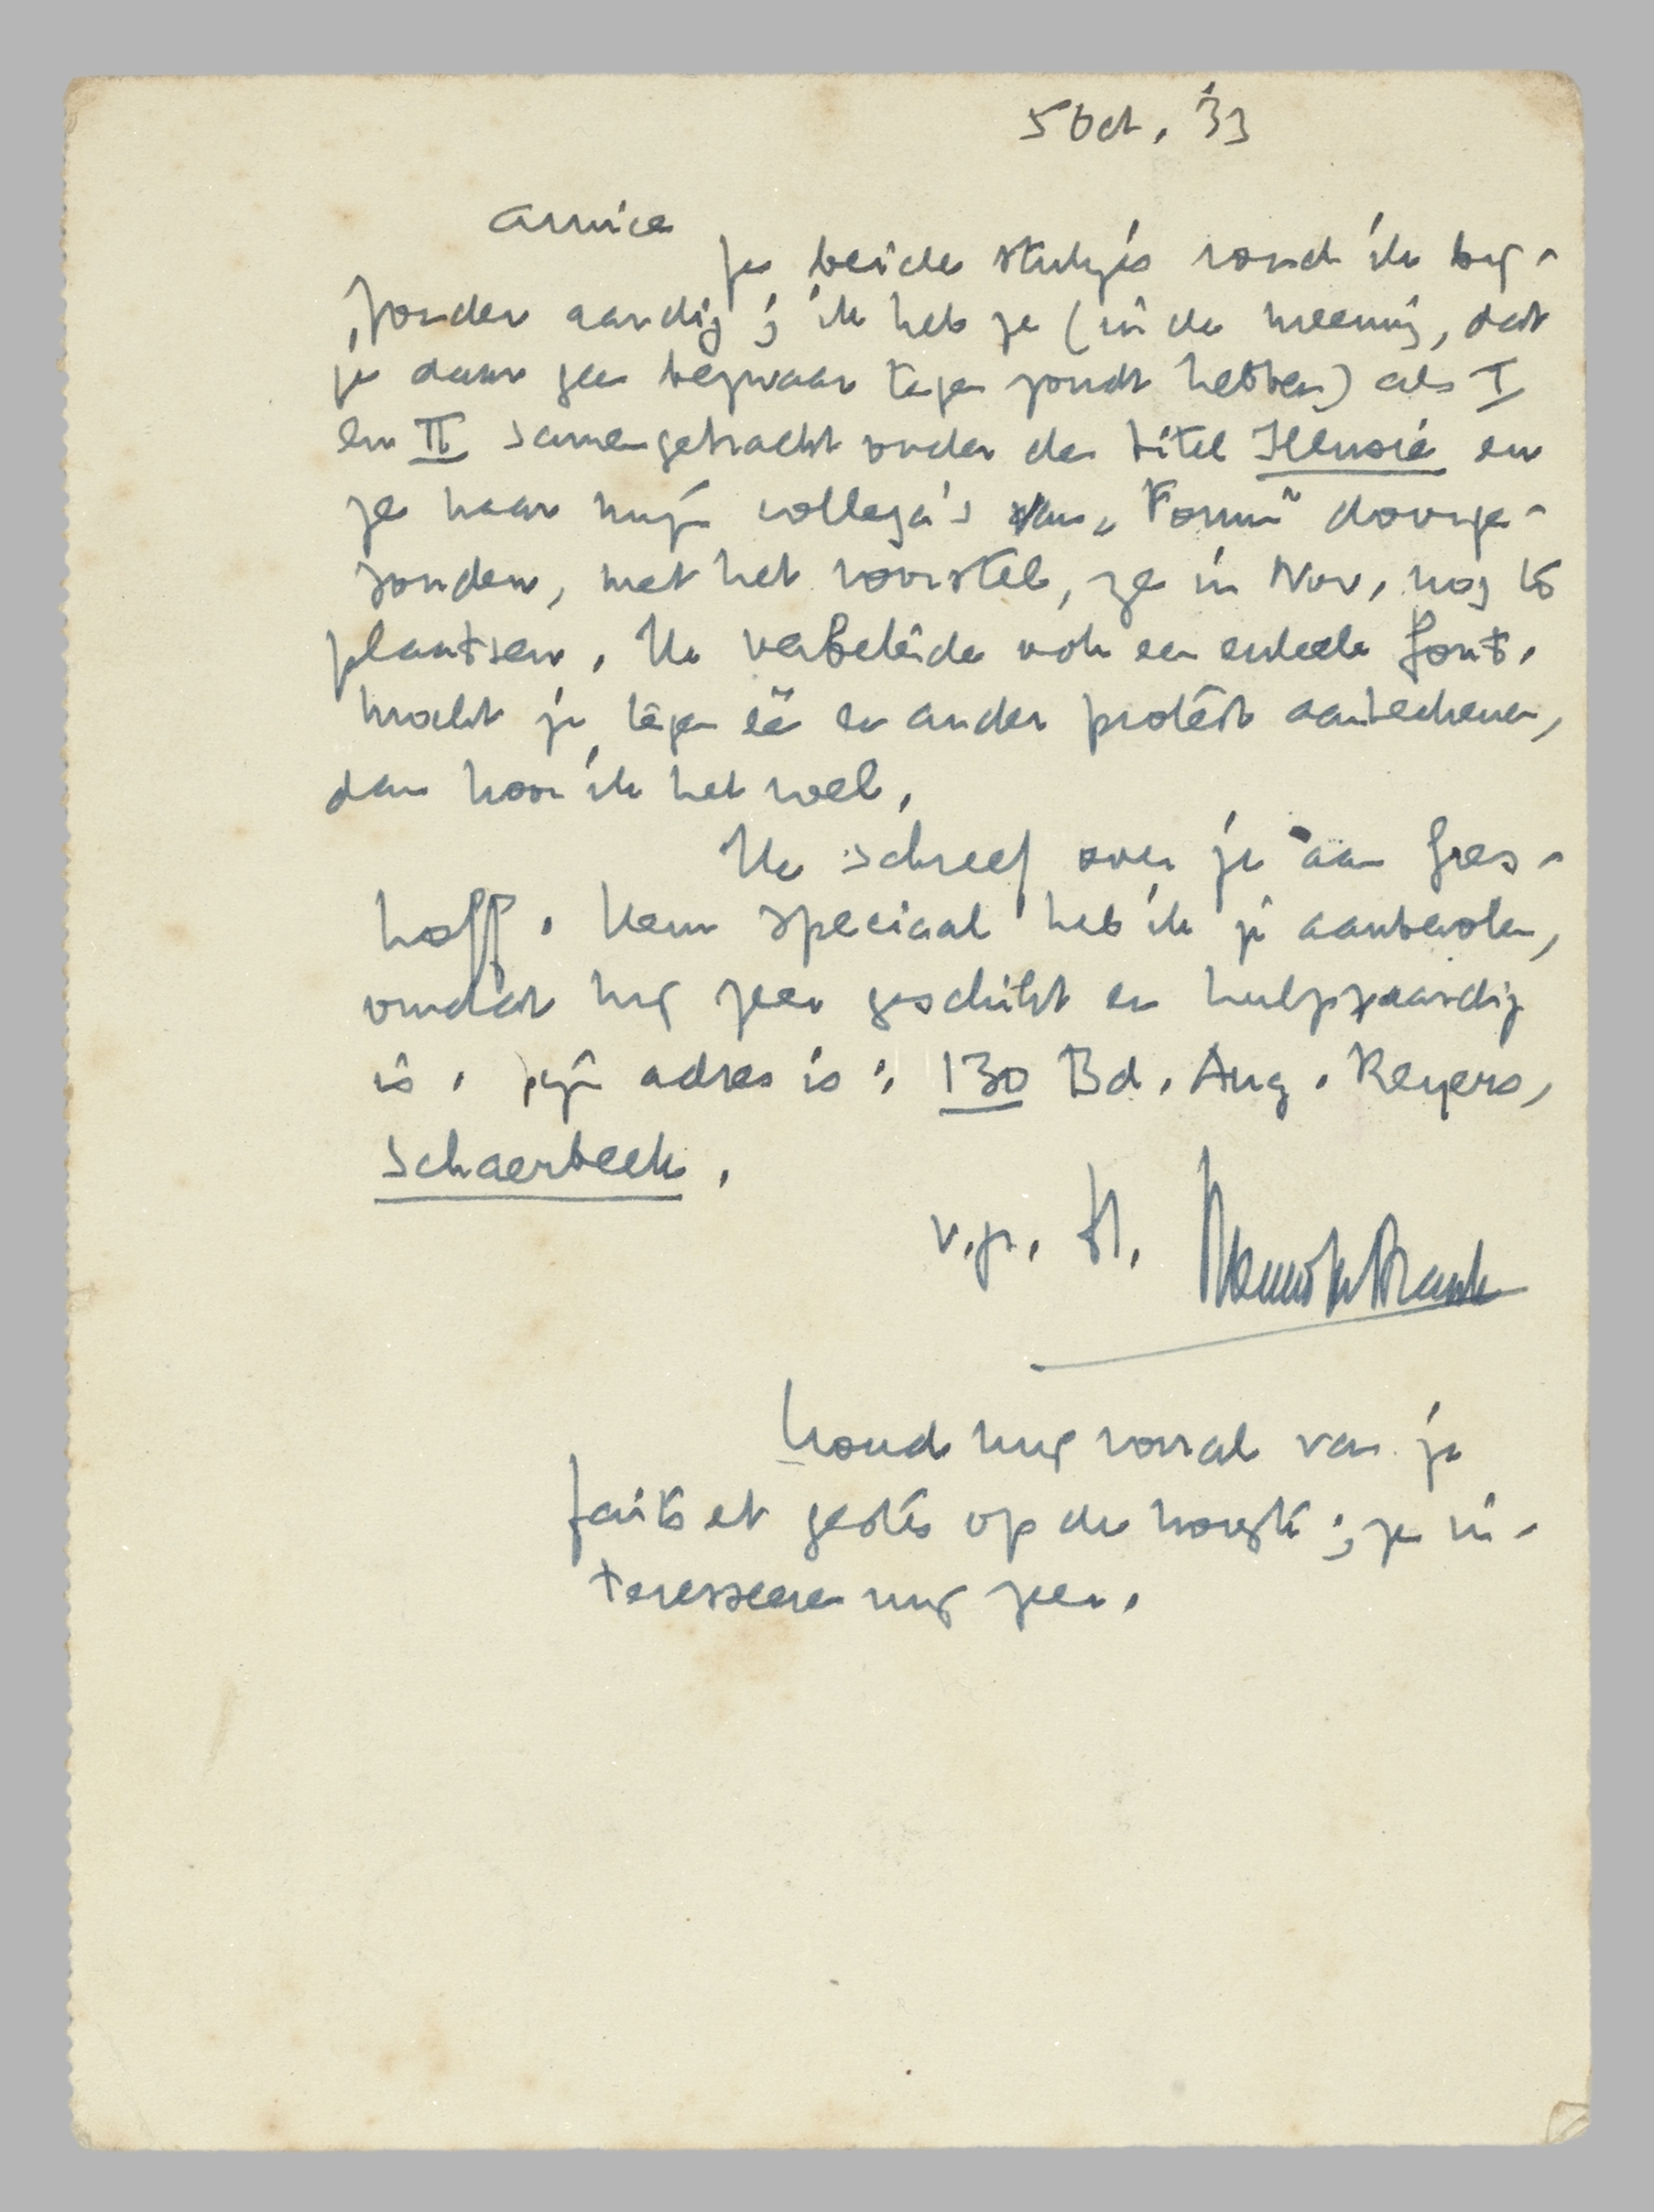 5 Oct. '33
Amice
Je beide stukjes vond ik bij-
zonder aardig; ik heb ze (in de meening, dat
je daar geen bezwaar tegen zoudt hebben) als I
en II samengebracht onder de titel Illusie en
ze naar mijn collega's van „Forum" doorge-
zonden, met het voorstel, ze in Nov. nog te
plaatsen. Ik verbeterde ook een enkele fout.
Mocht je tegen een en ander protest aanteekenen,
dan hoor ik het wel.
Ik schreef over je aan Gres-
hoff. Hem speciaal heb ik je aanbevolen,
omdat hij zeer geschikt en hulpvaardig
is. Zijn adres is: 130 Bd. Aug. Reyers,
Schaerbeek.
v.h. tt. Menno ter Braak
Houd mij vooral van je
faits et gestes op de hoogte; ze in-
teresseeren mij zeer.